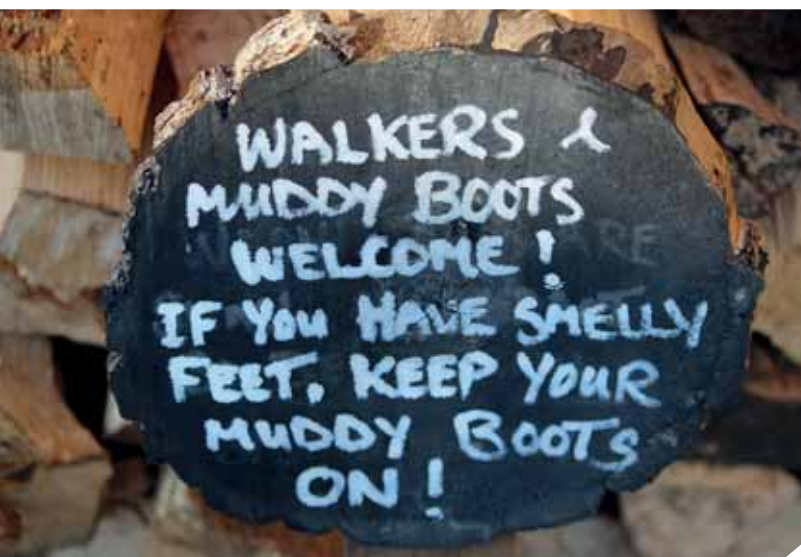 WALKERS &
MUDDY BOOTS
WELCOME!
IF YOU HAVE SMELLY
FEET, KEEP YOUR
MUDDY BOOTS
ON!